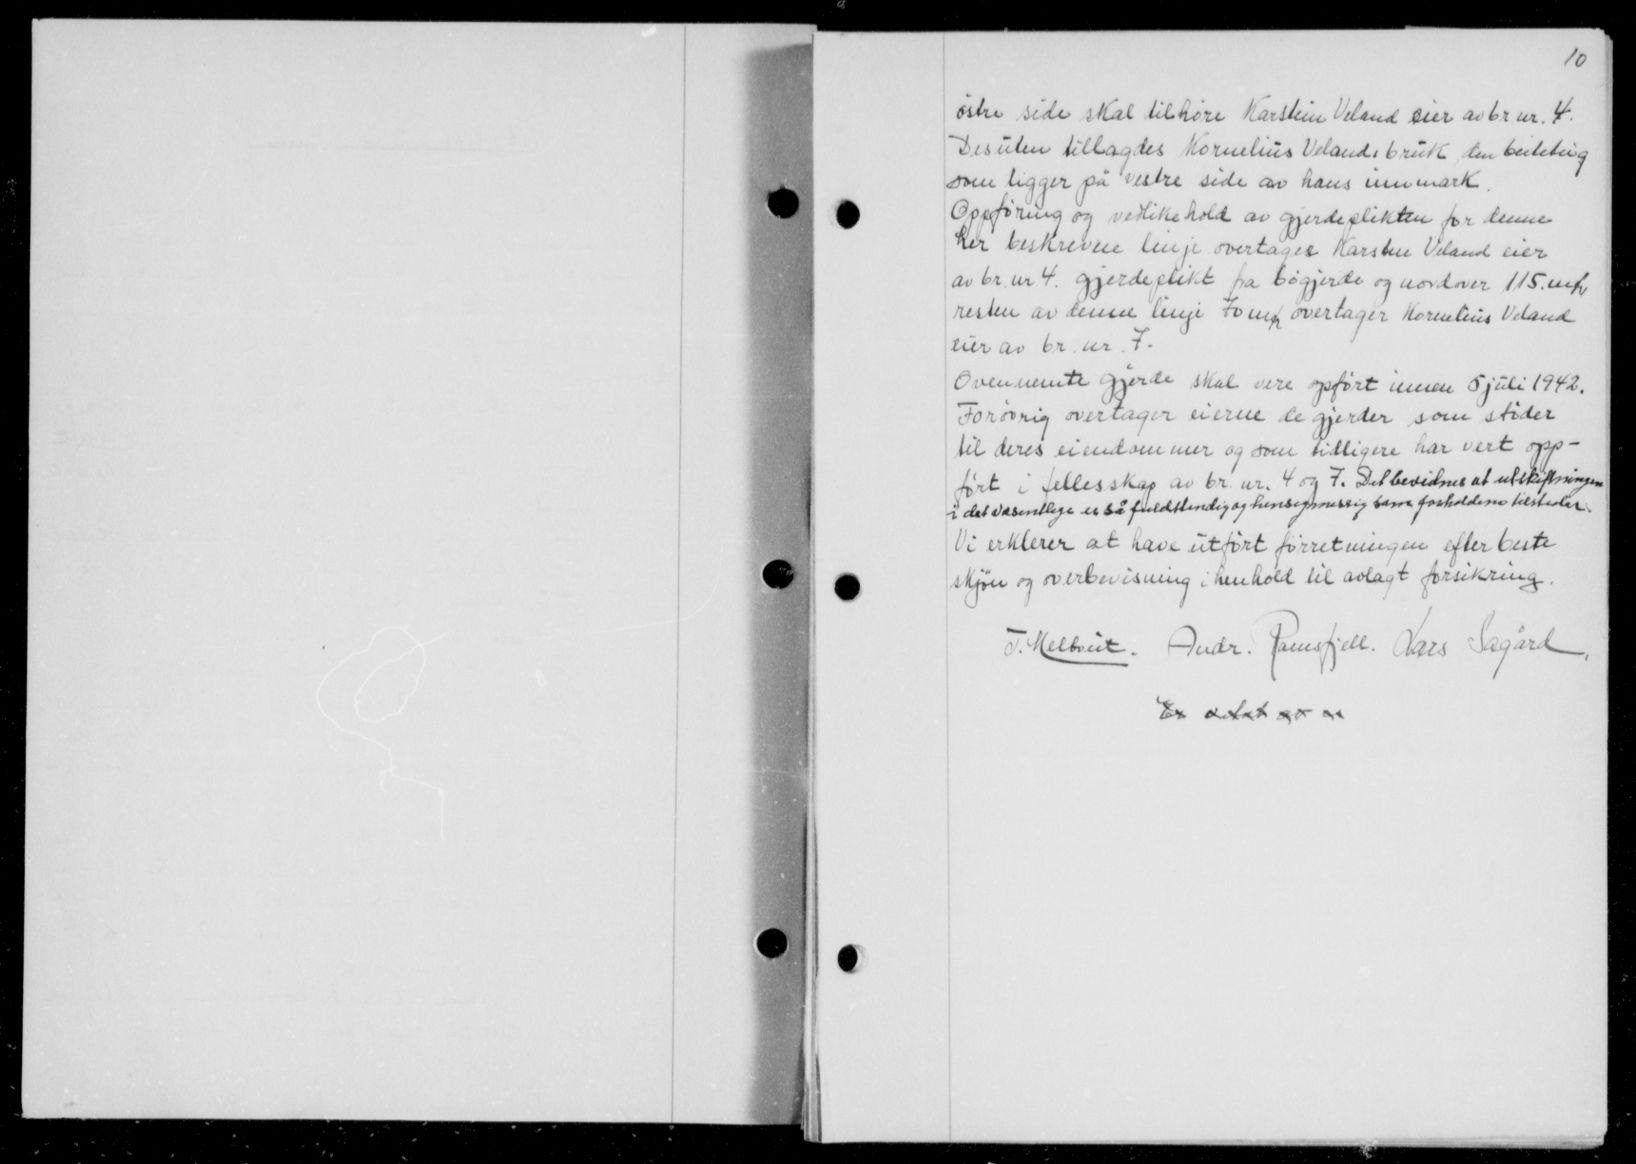 10
östre side skal tilhöre Karstein Veland eier av br. nr. 4.
Desuten tillagdes Kornelius Velands bruk, den beiteteig
som ligger på vestre side av hans innmark.
Oppföring og vedlikehold av gjerdeplikten for denne
her beskrevne linje overtages Karsten Veland eier
av br. nr 4. gjerdeplikt fra bögjerde og nordover 115. mtr
resten av denne linje 70 mtr overtager Kornelius Veland
eier av br. nr. 7.
Ovennemte gjerde skal vere opfört innen 5 juli 1942.
Forövrig overtager eierne de gjerder som stöder
til deres eiendommer og som tidligere har vert opp-
fört i fellesskap av br. nr. 4 og 7. Det bevidnes at utskiftningen
i det væsentlige er så fuldstendig og hensigmessig som forholdene tilsteder.
Vi erklerer at have utfört forretningen efter beste
skjön og overbevisning i henhold til avlagt forsikring.
T. Meltveit. Andr. Ramsfjell. Lars Sagård.